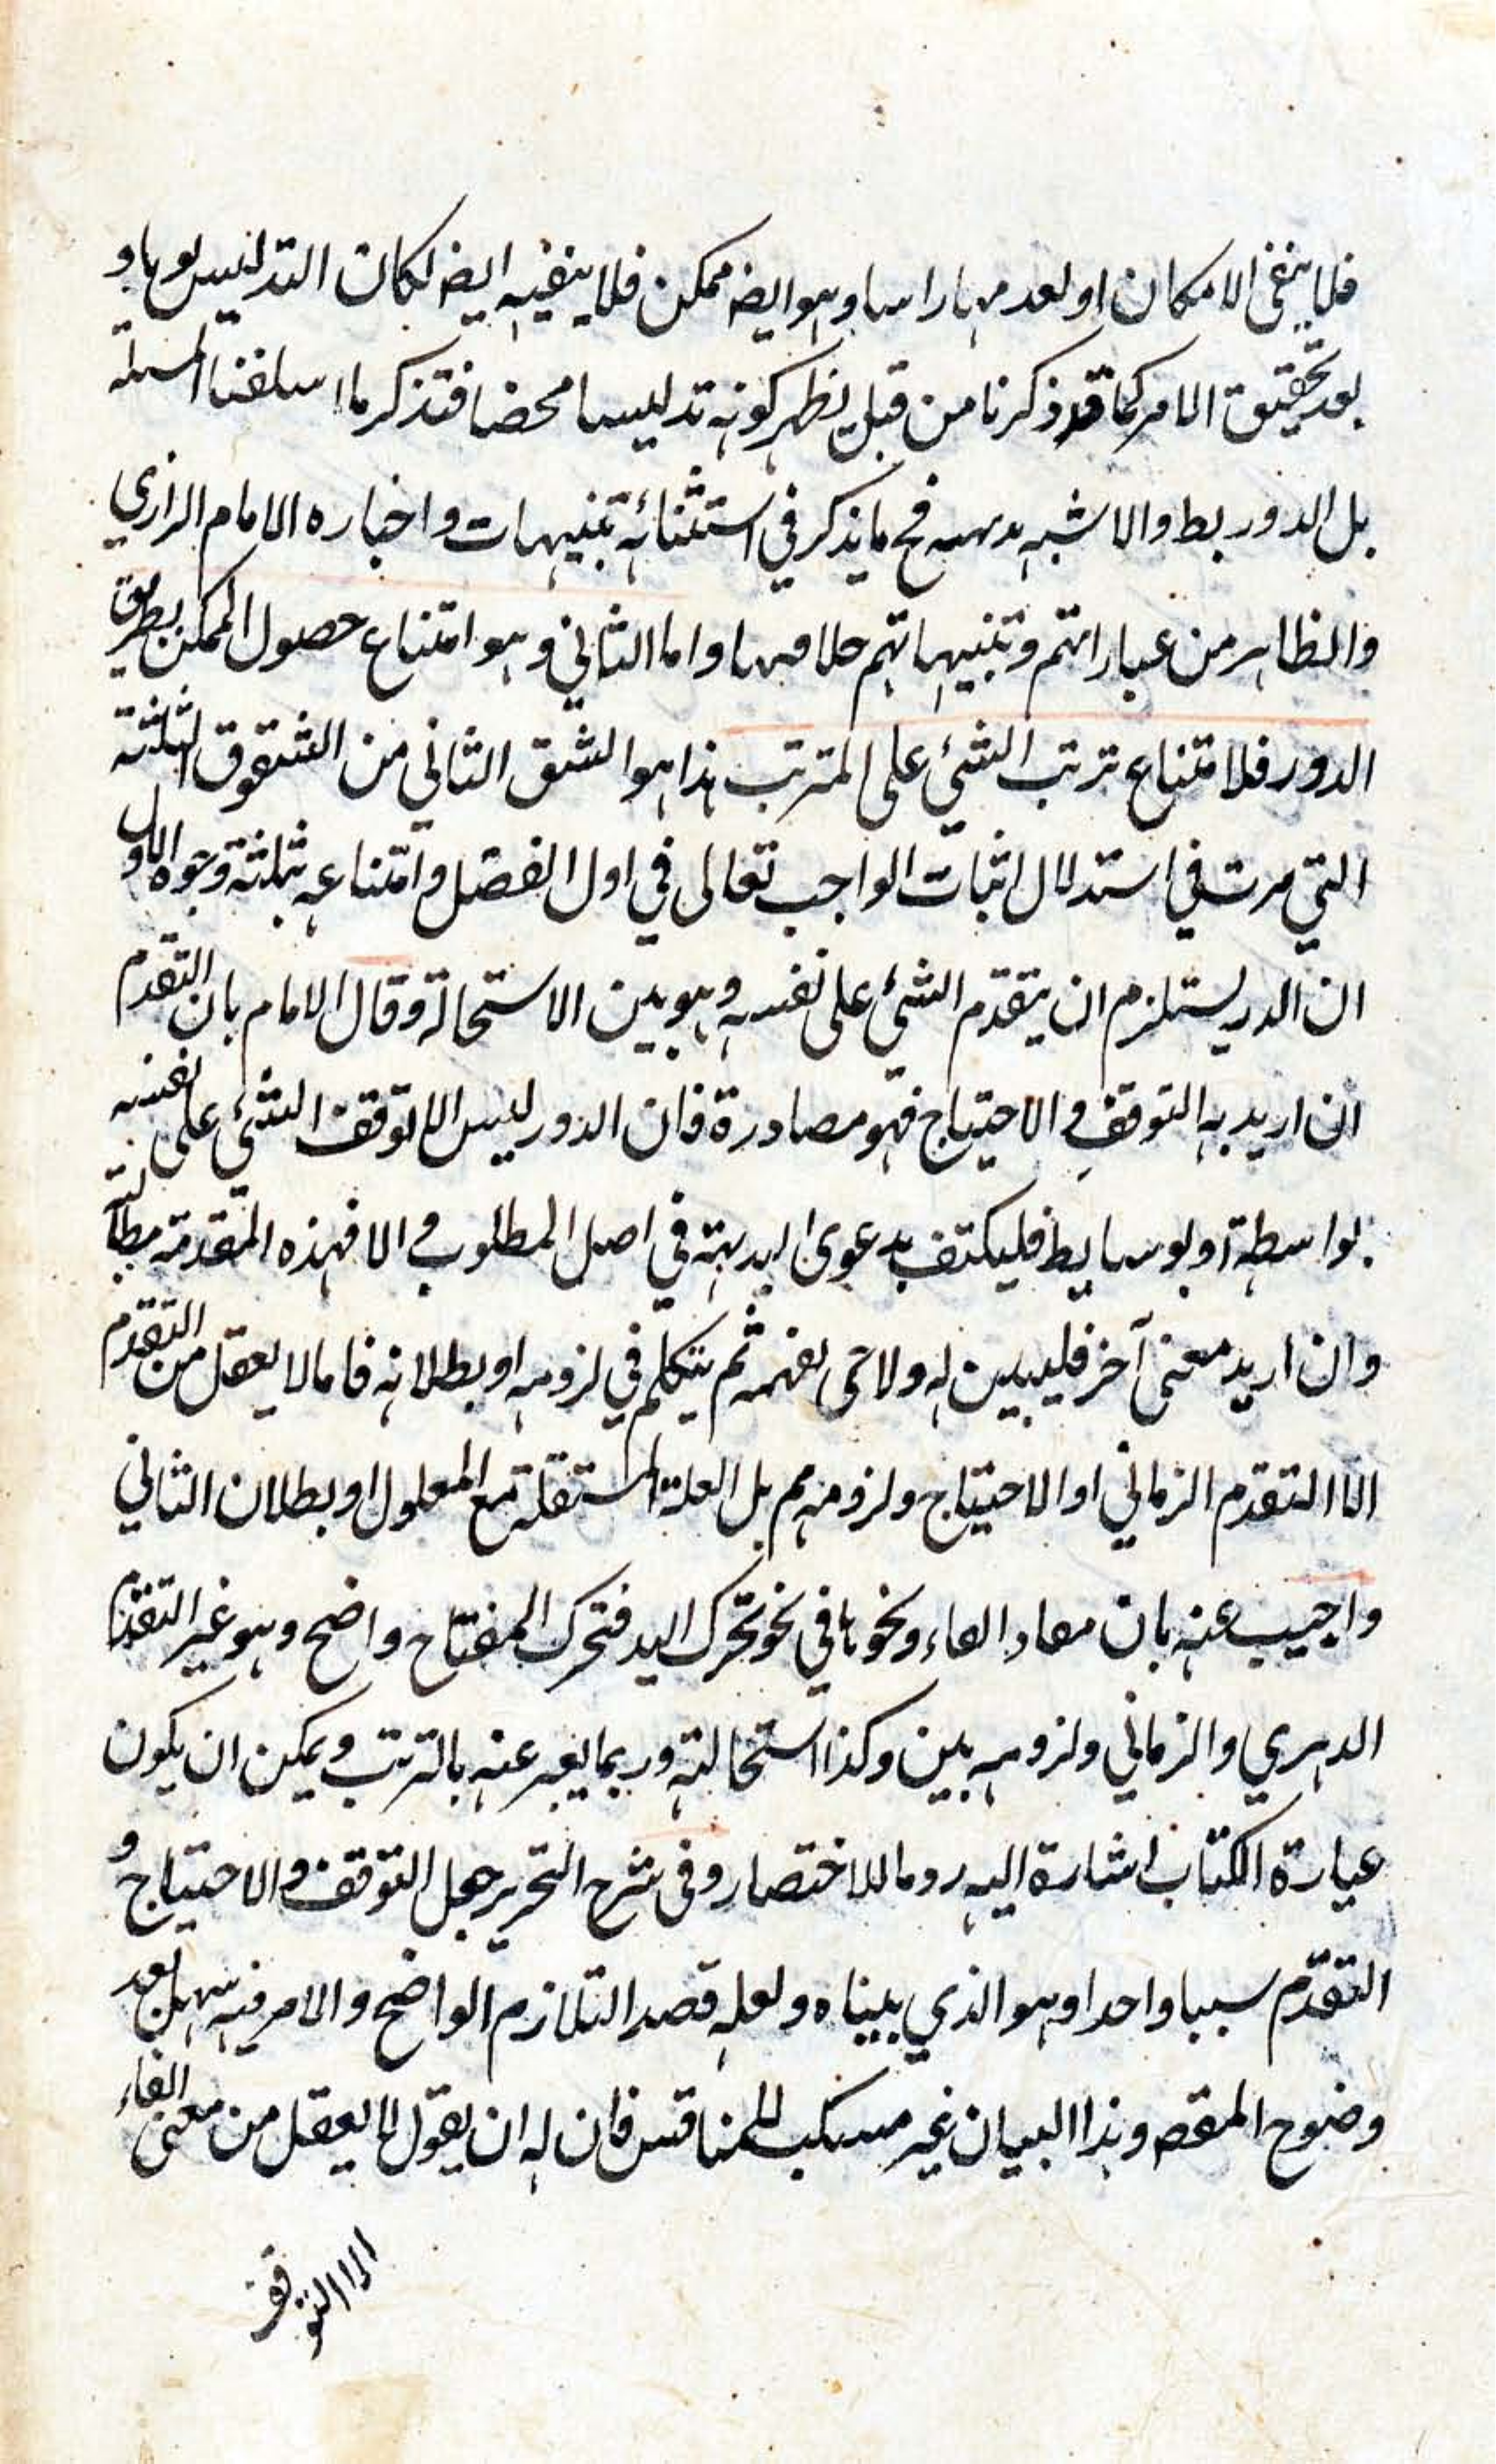 فلا ينفى الامكان او لعدمها راسا وهو ايضه ممكن فلا ينفيه ايضه لكان التدليس
بعد تحقيق الامر كما قد ذكرنا من قبل يظهر كونه تدليسا محضا فتذكر ما اسلفنا المسئلة
بل الدور بط والاشبه فح ما يذكر في استثنائه تنبيهات واختاره الامام الرازي
والظاهر من عباراتهم وتنبيهاتهم واما الثاني وهو امتناع حصول الممكن بطريق
الدور فلامتناع ترتب الشئ على المترتب هذا هو الشق الثاني من الشقوق الثلثة
التي مرت في استدلال اثبات الواجب تعالى في اول الفصل وامتناعه بثلثة وجوه الاول
ان الدر يستلزم ان يتقدم الشئ على نفسه وهو بين الاستحالة وقال الامام بان التقدم
ان اريد به التوقف والاحتياج فهو مصادرة فان الدور ليس الا توقف الشئ على نفسه
بواسطة او بوسايط فليكتف بدعوى البديهة في اصل المطلوب والا فهذه المقدمة
وان اريد معنى آخر فليبين له ولا حتى نفهمه ثم يتكلم في لزومه او بطلانه فاما لا يعقل من التقدم
الا التقدم الزماني او الاحتياج ولزومه مم بل العلة المستقلة مع المعلول او بطلان الثاني
واجيب عنه بان مفاد الفاء ونحوها في نحو تحرك اليد فتحرك المفتاح واضح وهو غير التقدم
الدهري والزماني ولزومه بين وكذا استحالته وربما يعبر عنه بالترتب ويمكن ان يكون
عبارة الكتاب اشارة اليه روما للاختصار وفى شرح التحرير جعل التوقف والاحتياج و
التقدم سببا واحدا وهو الذي بيناه ولعله قصد التلازم الواضح والامر فيه سهل بعد
وضوح المقصه وهذا البيان غير مسكت للمناقش فان له ان يقول لا يعقل من معنى الفاء
الا التوقف